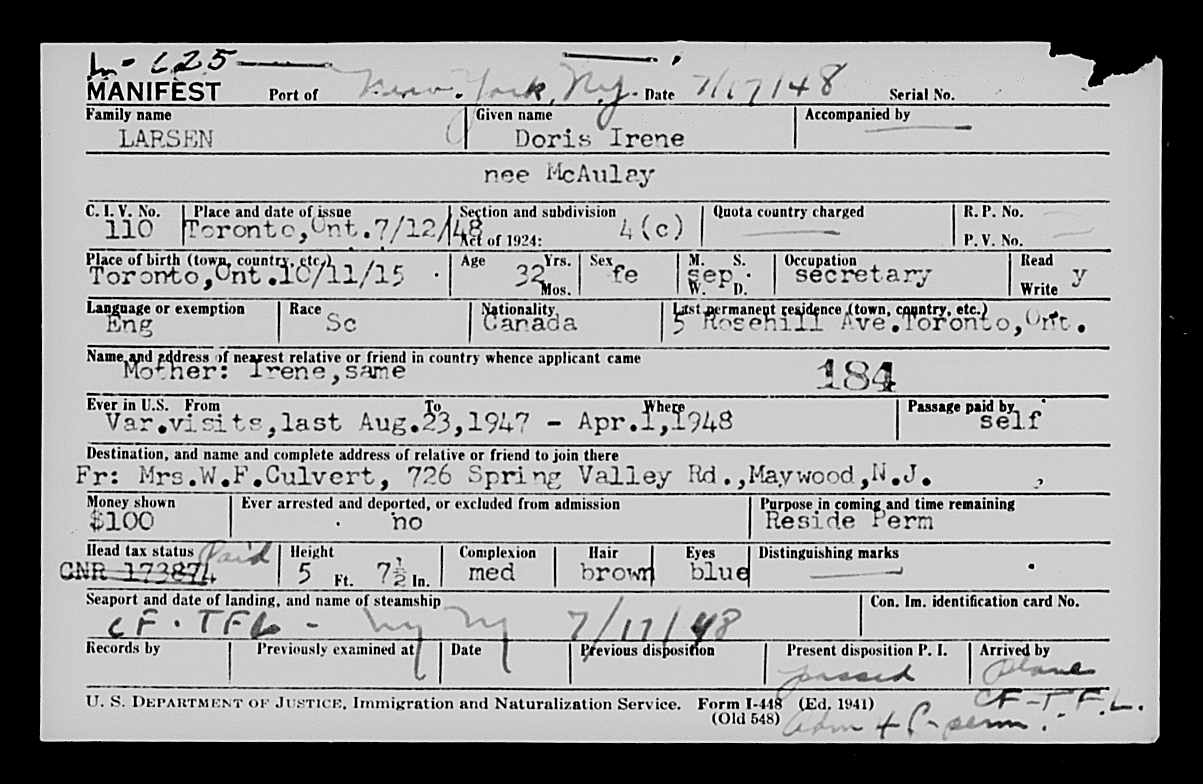 L-625
MANIFEST Port of New York, N.Y. Date 7/17/48 Serial No.
Family name Given name Accompanied by
LARSEN Doris Irene
nee McAulay
C. I. V. No. Place and date of issue Section and subdivision Quota country charged R. P. No.
110 Toronto,Ont.7/12/48 Act of 1924: 4(c) P. V. No.
Place of birth (town, country, etc.) Age Yrs. Sex M. S. Occupation Read
Toronto,Ont.10/11/15 32 Mos. fe sep W. D. secretary Write y
Language or exemption Race Nationality Last permanent residence (town, country, etc.)
Eng Sc Canada 5 Rosehill Ave.Toronto,Ont.
Name and address of nearest relative or friend in country whence applicant came
Mother: Irene,same 184
Ever in U.S. From To Where Passage paid by
Var.visits,last Aug.23,1947 - Apr.1,1948 self
Destination, and name and complete address of relative or friend to join there
Fr: Mrs.W.F.Culvert, 726 Spring Valley Rd.,Maywood,N.J.
Money shown Ever arrested and deported, or excluded from admission Purpose in coming and time remaining
$100 no Reside Perm
Head tax status Paid Height Complexion Hair Eyes Distinguishing marks
CNR 173874 5 Ft. 7½ In. med brown blue
Seaport and date of landing, and name of steamship Con. Im. identification card No.
CF-TFL - NY NY 7/17/48
Records by Previously examined at Date Previous disposition Present disposition P. I. Arrived by
passed plane
U. S. DEPARTMENT OF JUSTICE, Immigration and Naturalization Service. Form I-448 (Ed. 1941) CF-TFL.
(Old 548) adm + P-perm.